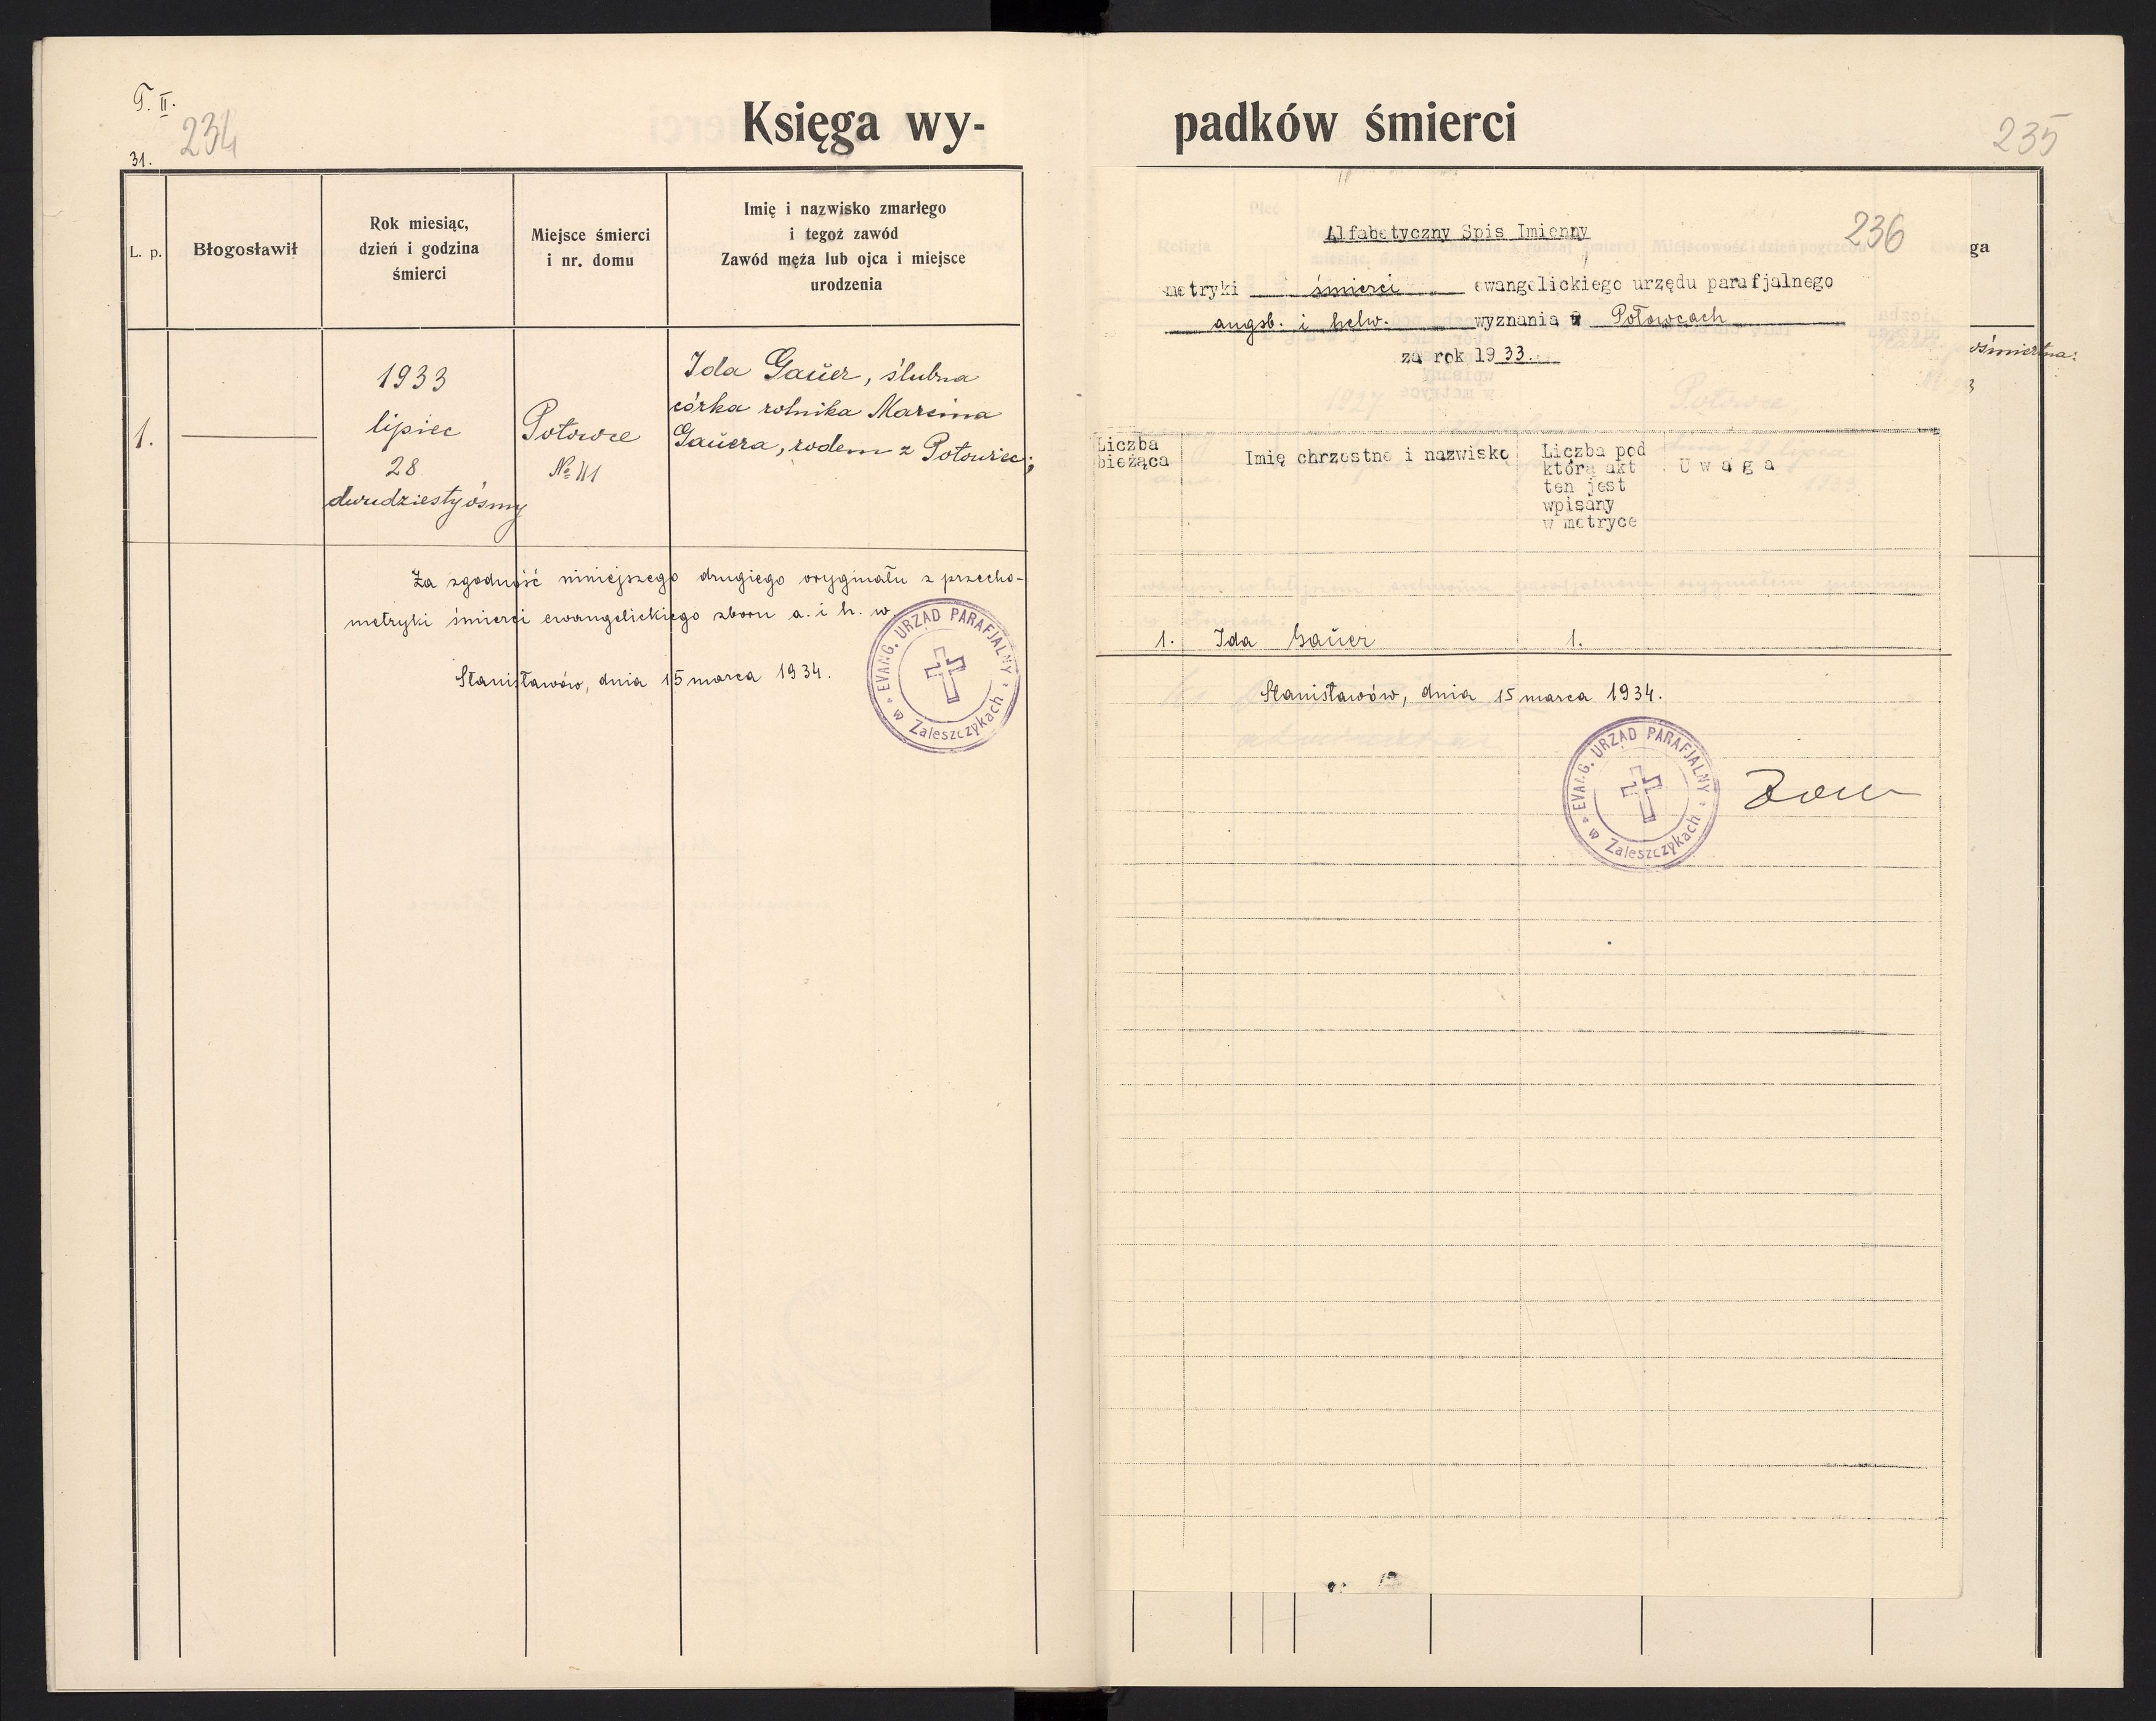 T. II.
234
31.
Księga wy-
L. p.
Błogosławił
Rok miesiąc,
dzień i godzina
śmierci
Miejsce śmierci
i nr. domu
Imię i nazwisko zmarłego
i tegoż zawód
Zawód męża lub ojca i miejsce
urodzenia
1.
1933
lipiec
28
dwudziestyósmy
Połowce
№ 41
Ida Gaŭer, ślubna
córka rolnika Marcina
Gaŭera, rodem z Połowiec;
Za zgodność niniejszego drugiego oryginału z przecho-
metryki śmierci ewangelickiego zboru a. i h. w.
Stanisławów, dnia 15 marca 1934.
EVANG. URZĄD PARAFJALNY
w Zaleszczykach
padków śmierci
235
236
Alfabetyczny Spis Imienny
metryki śmierci ewangelickiego urzędu parafjalnego
augsb. i helw. wyznania w Połowcach
za rok 1933.
ga
ośmiertna:
3
Liczba
bieżąca
Imię chrzestne i nazwisko
Liczba pod
którą akt
ten jest
wpisany
w metryce
U w a g a
1. Ida Gaŭer 1.
Stanisławów, dnia 15 marca 1934.
EVANG. URZĄD PARAFJALNY
w Zaleszczykach